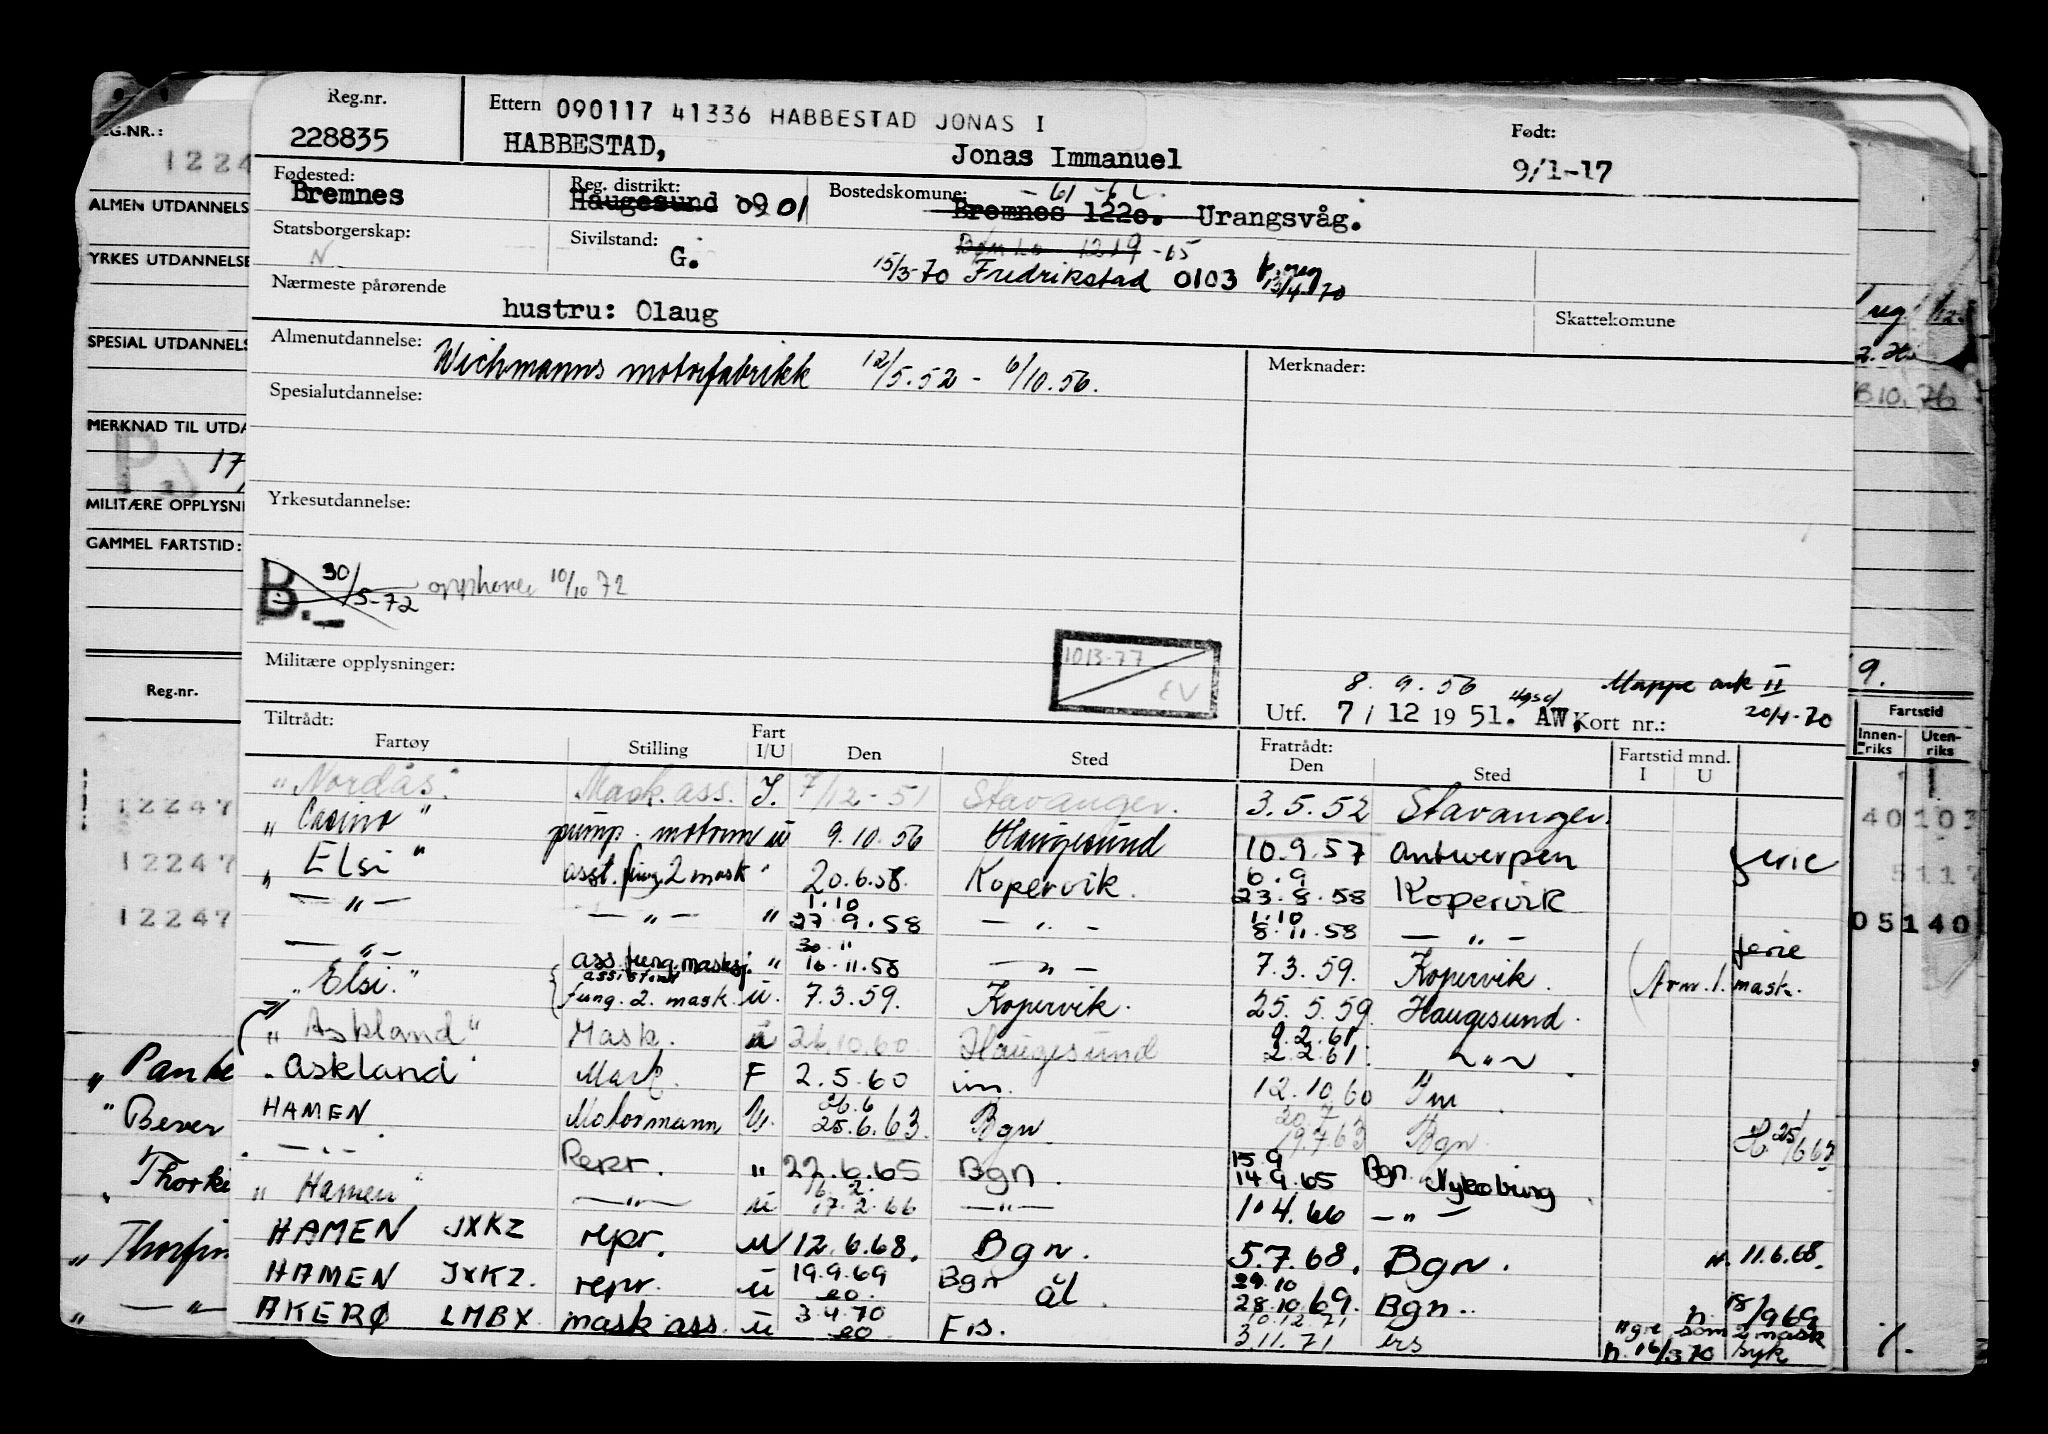 Reg.nr. Ettern 090117 41336 HABBESTAD JONAS I Født:
228835 HABBESTAD, Jonas Immanuel 9/1-17
Fødested: Reg. distrikt: Bostedskomune: - 61 -
Bremnes Haugesund 09 01 Bremnes 1220. Urangsvåg.
Statsborgerskap: Sivilstand: 1219 -65
N G. 15/3-70 Fredrikstad 0103 13/4 70
Nærmeste pårørende
hustru: Olaug Skattekomune
Almenutdannelse: Wichmanns motorfabrikk 12/5.52 - 6/10.56. Merknader:
Spesialutdannelse:
Yrkesutdannelse:
B. 30/5-72 opphører 10/10 72
Militære opplysninger: 1013-77 EV
8. 9. 56 Mappe ark II
Utf. 7 / 12 19 51. AW. Kort nr.: 20/4-70
Tiltrådt: Fratrådt: Fartstid mnd.
Fartøy Stilling Fart I/U Den Sted Den Sted I U
"Nordås". Mask.ass. I. 7/12-51 Stavanger. 3.5.52 Stavanger.
" Casino " pump. motorm u 9.10.56 Haugesund 10.9.57 Antwerpen ferie
" Elsi " asst. fung. 2 mask " 20.6.58. Kopervik. 6.9 23.8.58 Kopervik
— " — — " — " 1.10 27.9.58 — " — 1.10 8.11.58 — " —
— " — ass. fung. maskj. " 30.11 16.11.58 — " — 7.3.59. Kopervik. ferie
"Elsi." assistent fung. 2. mask. u. 7.3.59. Kopervik. 25.5.59. Haugesund. mask.
" Askland " Mask. u 10.60 Haugesund 9.2.61 2.2.61. " 
"Askland" Mask. F 2.5.60 im. 12.10.60 Im
HAMEN Motormann U. 26.6 25.6.63. Bgn. 20.7 19.7.63 Bgn. 25/6 63
— " — Repr. " 22.6.65 Bgn. 15.9 14.9.65 Bgn. Nykøbing
" Hamen " — " — u 17.2.66 — " — 1.4.66 — " —
HAMEN JXKZ repr. u 12.6.68. Bgn. 5.7.68. Bgn. n. 11.6.68.
HAMEN JXKZ. repr. u 19.9.69 Bgn 29.10 28.10.69. Bgn. n. 18/9 69
AKERØ LMBX mask ass. u 3.4.70 10.12.71 3.11.71 som 2 mask
n. 16/3 70 byk
REG.NR.:
1224
ALMEN UTDANNELS
YRKES UTDANNELSE
SPESIAL UTDANNELS
MERKNAD TIL UTDA
P. 17
MILITÆRE OPPLYSNI
GAMMEL FARTSTID:
Reg.nr.
12247
12247
12247
"Bever
"Thorki
" — " —
reg.
B10. 76
9.
Fartstid
Innen-riks Uten-riks
40103
5117
05140